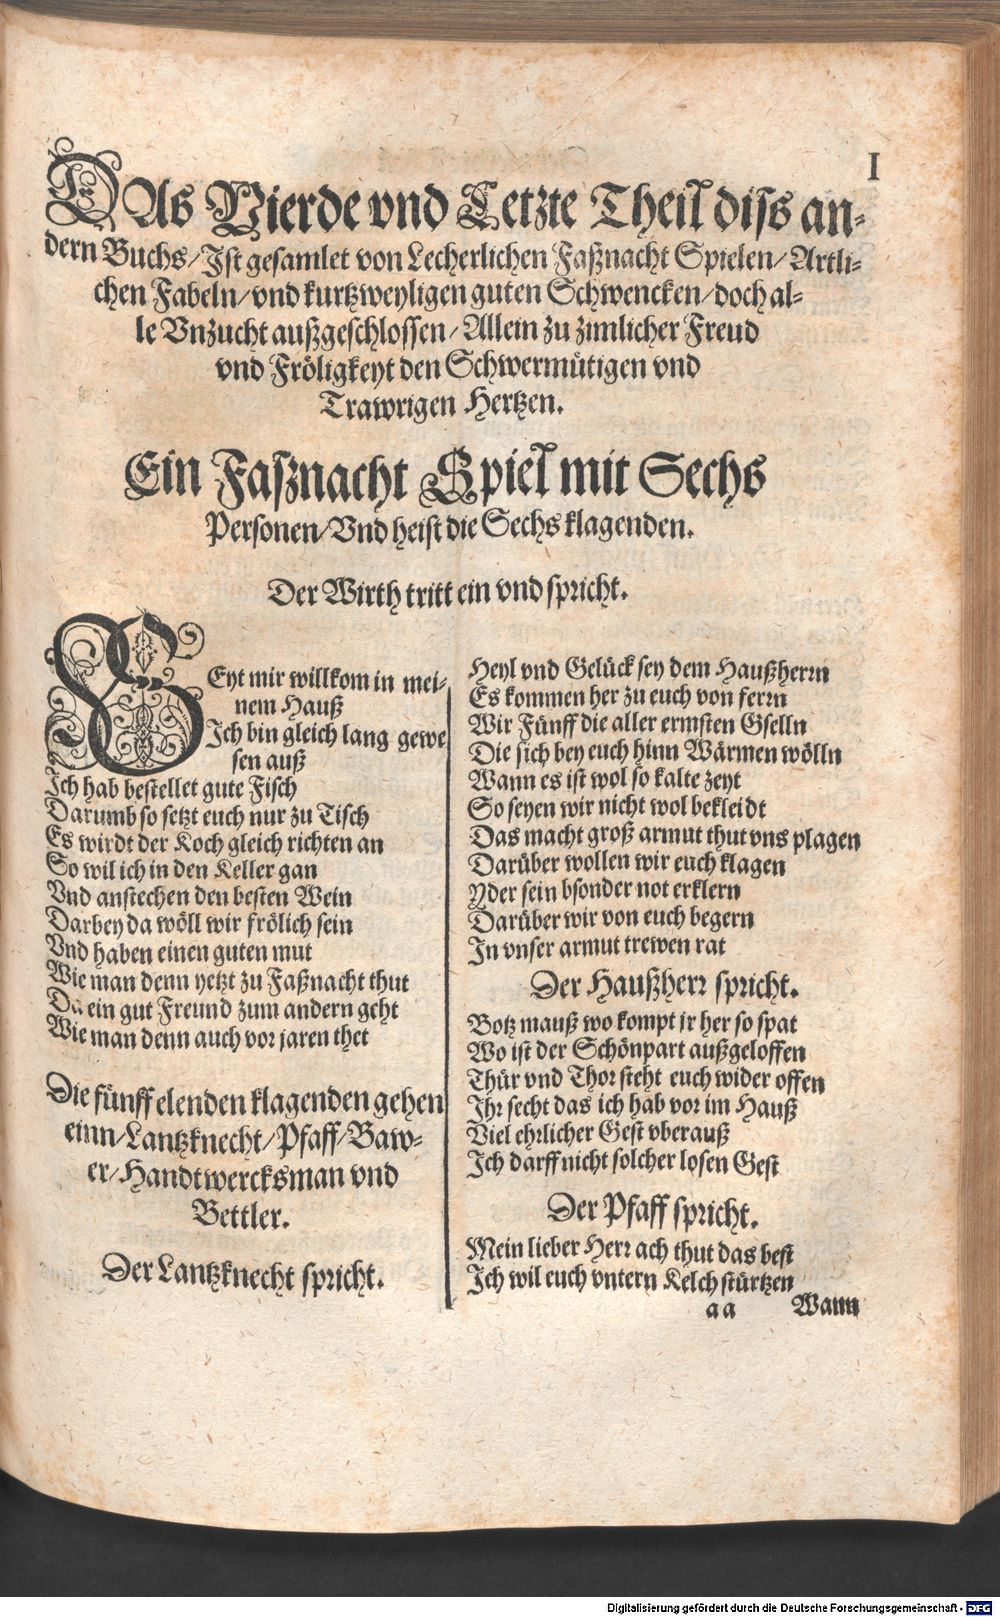 I
DAs Vierde vnd Letzte Theil diss an-
dern Buchs/Ist gesamlet von Lecherlichen Faßnacht Spielen/Artli-
chen Fabeln/vnd kurtzweyligen guten Schwencken/doch al-
le Vnzucht außgeschlossen/Allein zu zimlicher Freud
vnd Fröligkeyt den Schwermütigen vnd
Trawrigen Hertzen.
Ein Faßnacht Spiel mit Sechs
Personen/Vnd heist die Sechs klagenden.
Der Wirth tritt ein vnd spricht.
SEyt mir willkom in mei-
nem Hauß
Ich bin gleich lang gewe
sen auß
Ich hab bestellet gute Fisch
Darumb so setzt euch nur zu Tisch
Es wirdt der Koch gleich richten an
So wil ich in den Keller gan
Vnd anstechen den besten Wein
Darbey da wöll wir frölich sein
Vnd haben einen guten mut
Wie man denn yetzt zu Faßnacht thut
Da ein gut Freund zum andern geht
Wie man denn auch vor jaren thet
Die fünff elenden klagenden gehen
einn/Lantzknecht/Pfaff/Baw-
er/Handtwercksman vnd
Bettler.
Der Lantzknecht spricht.
Heyl vnd Gelück sey dem Haußherrn
Es kommen her zu euch von ferrn
Wir Fünff die aller ermsten Gselln
Die sich bey euch hinn Wärmen wölln
Wann es ist wol so kalte zeyt
So seyen wir nicht wol bekleidt
Das macht groß armut thut vns plagen
Darüber wollen wir euch klagen
Yder sein bsonder not erklern
Darüber wir von euch begern
In vnser armut trewen rat
Der Haußherr spricht.
Botz mauß wo kompt jr her so spat
Wo ist der Schönpart außgeloffen
Thür vnd Thor steht euch wider offen
Ihr secht das ich hab vor im Hauß
Viel ehrlicher Gest vberauß
Ich darff nicht solcher losen Gest
Der Pfaff spricht.
Mein lieber Herr ach thut das best
Ich wil euch vntern Kelch stürtzen
aa Wann
Digitalisierung gefördert durch die Deutsche Forschungsgemeinschaft - DFG